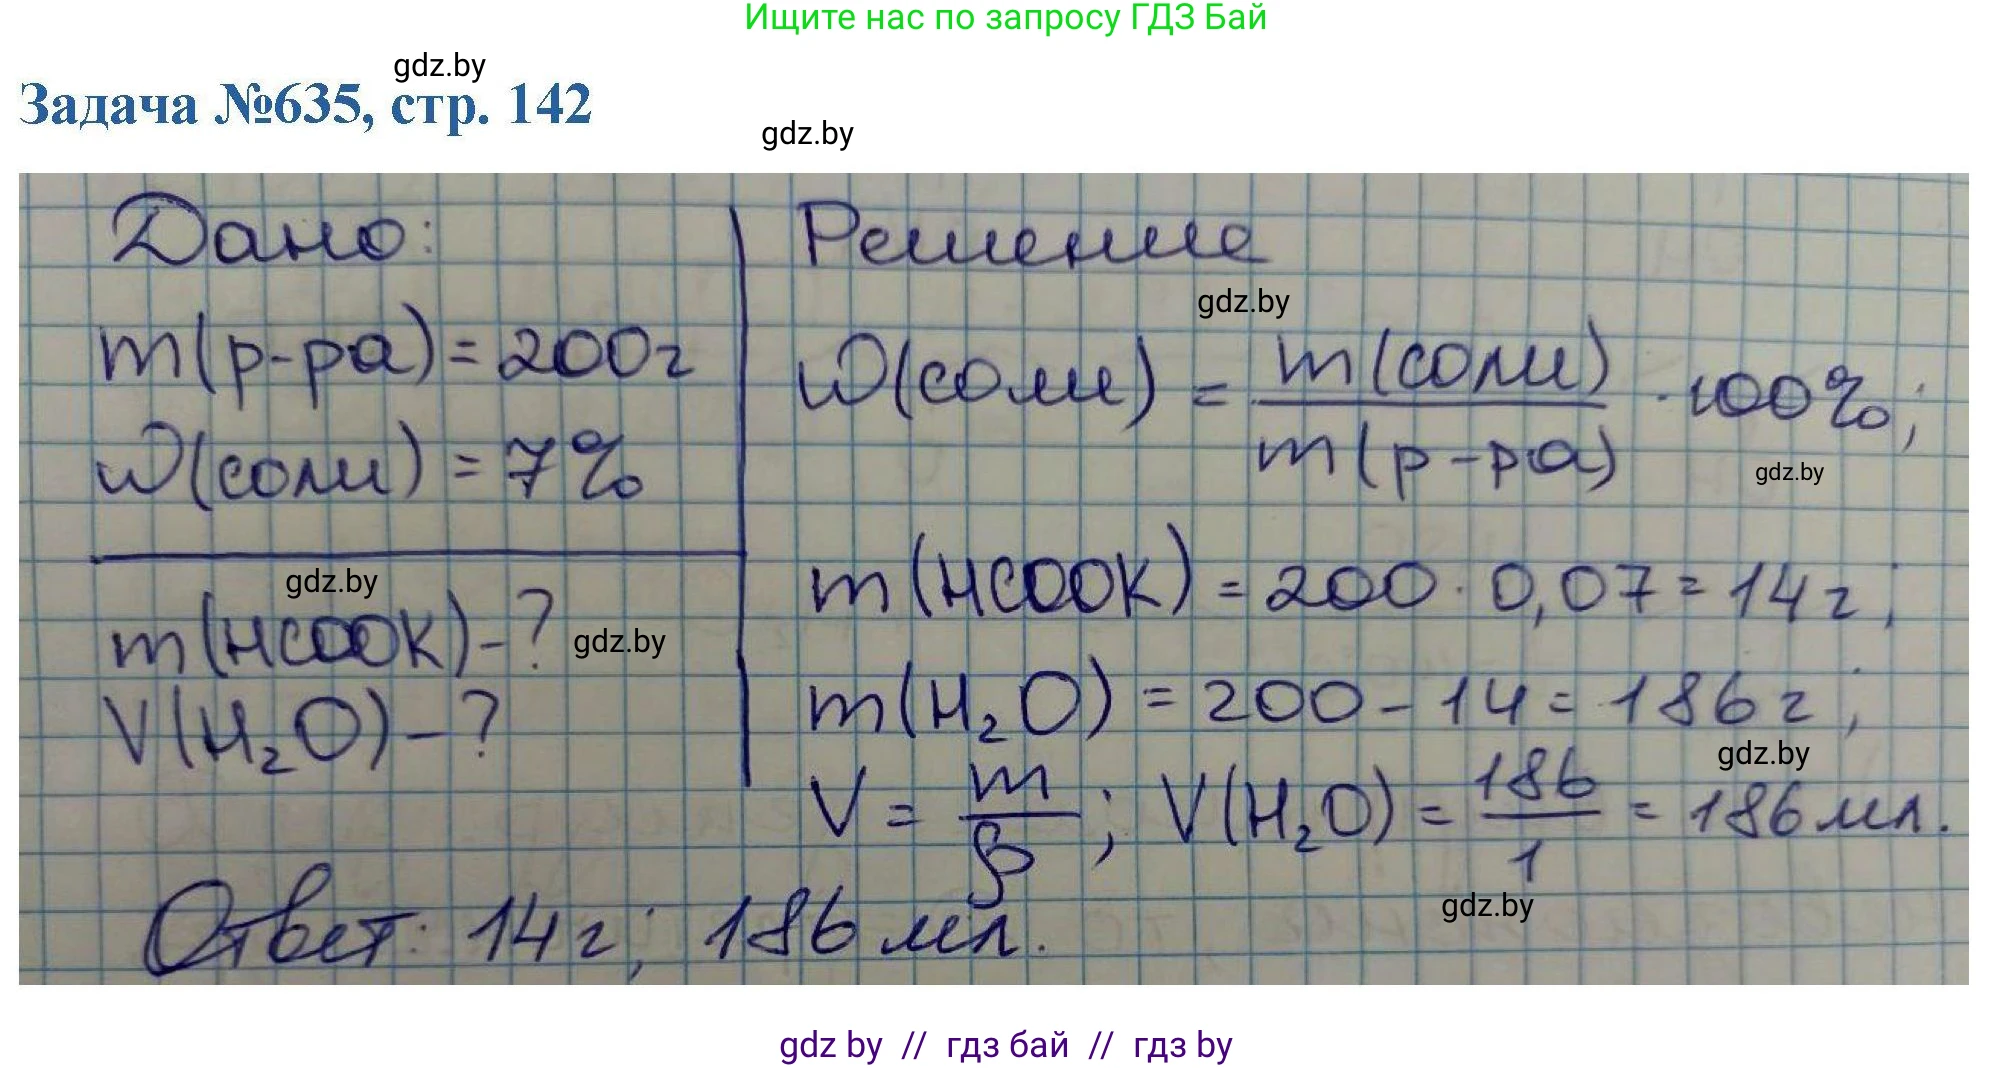 Ищите нас по запросу ГДЗ Бай
gdz.by
Задача №635, стр. 142
gdz.by
Дано:
m(р-ра) = 200г
ω(соли) = 7%
gdz.by
m(HCOOK) - ?
gdz.by
V(H₂O) - ?
Решение
gdz.by
ω(соли) = m(соли) / m(р-ра) · 100%;
gdz.by
m(HCOOK) = 200 · 0,07 = 14г;
m(H₂O) = 200 - 14 = 186г;
gdz.by
V = m / ρ; V(H₂O) = 186 / 1 = 186 мл.
gdz.by
Ответ: 14г; 186 мл.
gdz by // гдз бай // гдз by